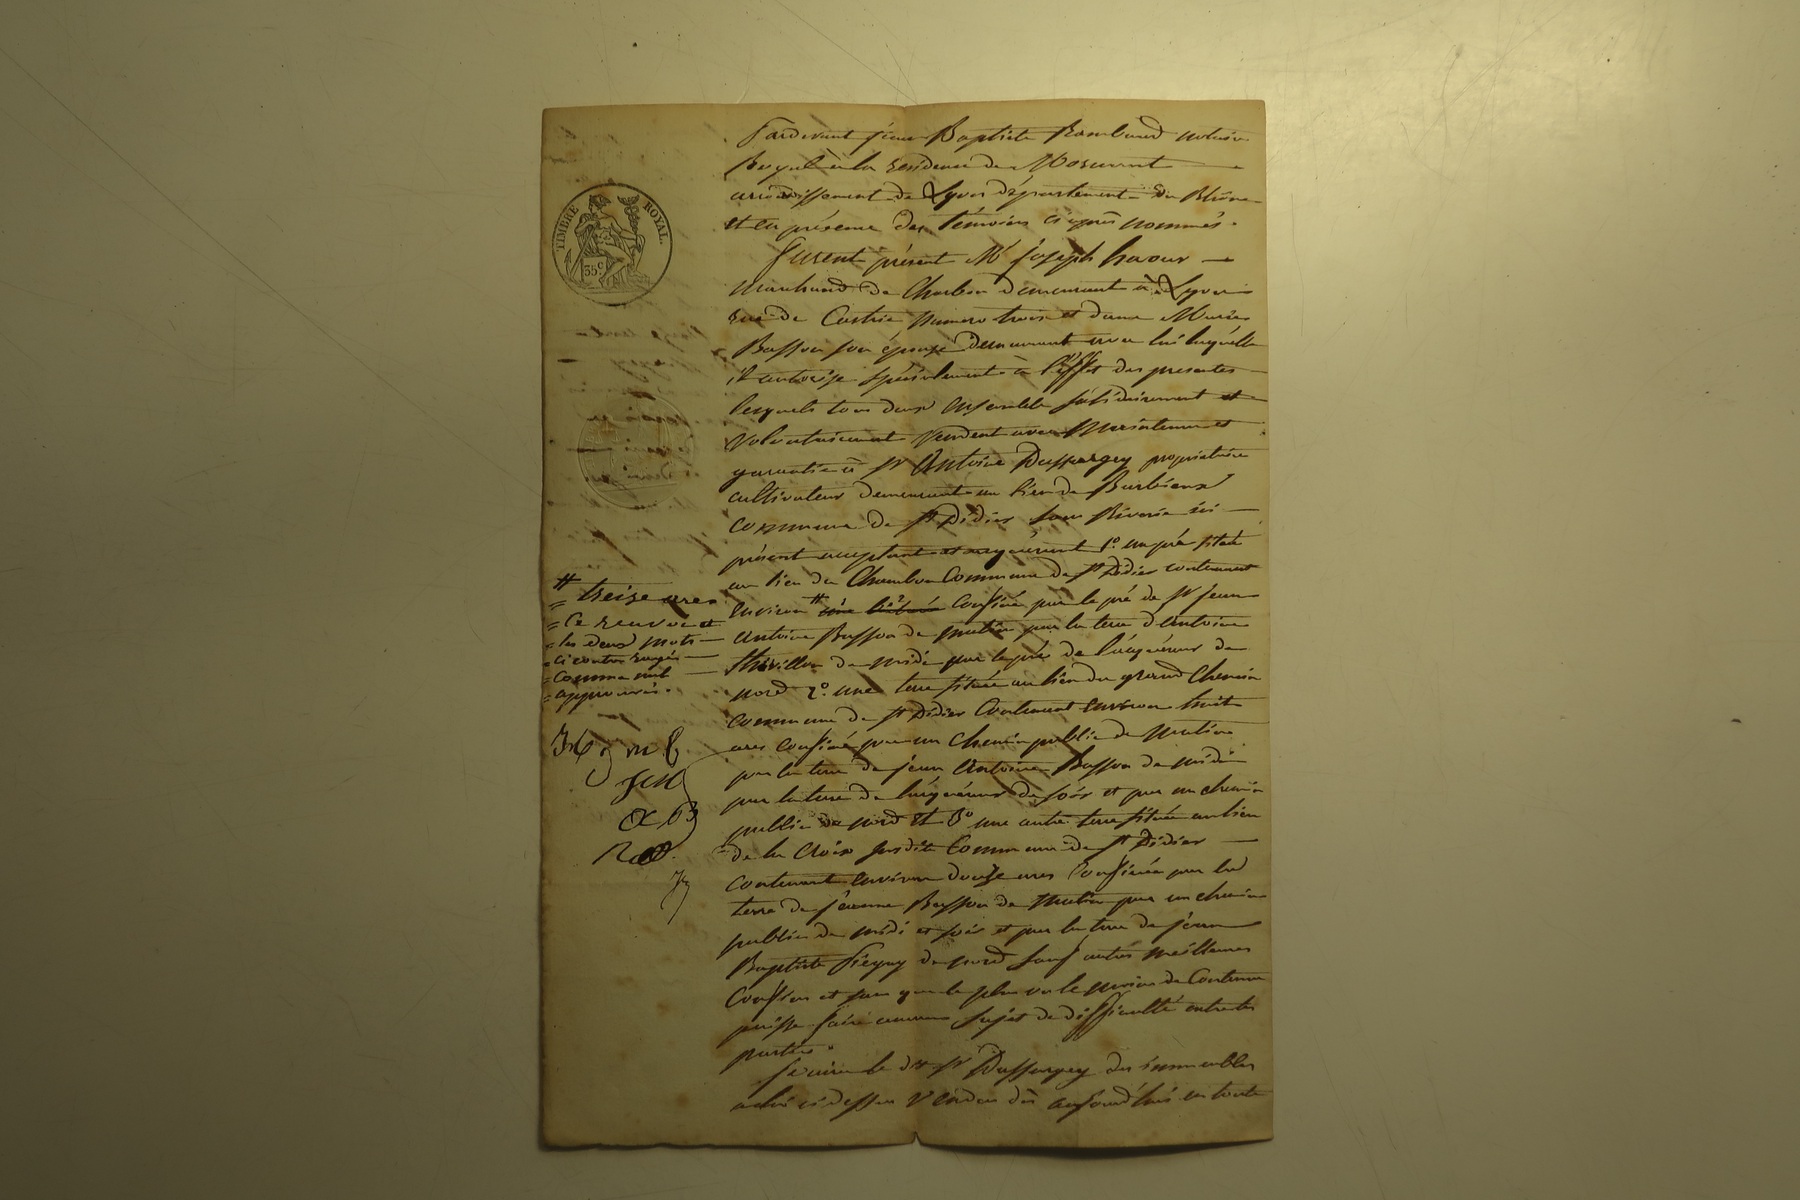 TIMBRE ROYAL.
35c
Pardevant Jean Baptiste Rambaud notaire
Royal à la residence de Mornant
arrondissement de Lyon département du Rhône
et en présence des témoins ci après nommés.
Furent présent Mr Joseph
marchand de Charbon demeurant à Lyon
rue de Castrie numero trois et dame Marie
Basson son épouse demeurant avec lui laquelle
il autorise spécialement à l'effet des presentes
lesquels tous deux ensemble solidairement et
volontairement vendent avec maintenue et
garantie à Sr Antoine Dussurgey propriétaire
cultivateur demeurant au lieu de
commune de St Didier sous Riverie ici
présent acceptant et acquérant 1o. un pré situé
au lieu du Chambon Commune de St Didier contenant
environ # Confiné par le pré de Sr Jean
Antoine Basson de matin par la terre d'Antoine
Thivillon de midi par le pré de l'acquéreur de
nord 2o. une terre située au lieu du grand Chemin
commune de St Didier Contenant environ huit
ares confiné par un chemin public de matin
par la terre de Jean Antoine Basson de midi
par la terre de l'acquéreur de soir et par un chemin
public de nord et 3o une autre terre située au lieu
de la Croix susdite Commune de St Didier
contenant environ douze ares Confinée par la
terre de Basson de matin par un chemin
public de midi et soir et par la terre de Jean
Baptiste de nord sauf autres meilleurs
Confins et sans que le plus ou le moins de Contenue
puisse faire aucun sujet de difficulté entre les
parties.
le dit Sr Dussurgey des immeubles
ci dessus vendus dès aujourd'hui en toute
# treize ares
= Ce renvoi et
= les deux mots
= ci contre rayés
= comme nul
= approuvés.